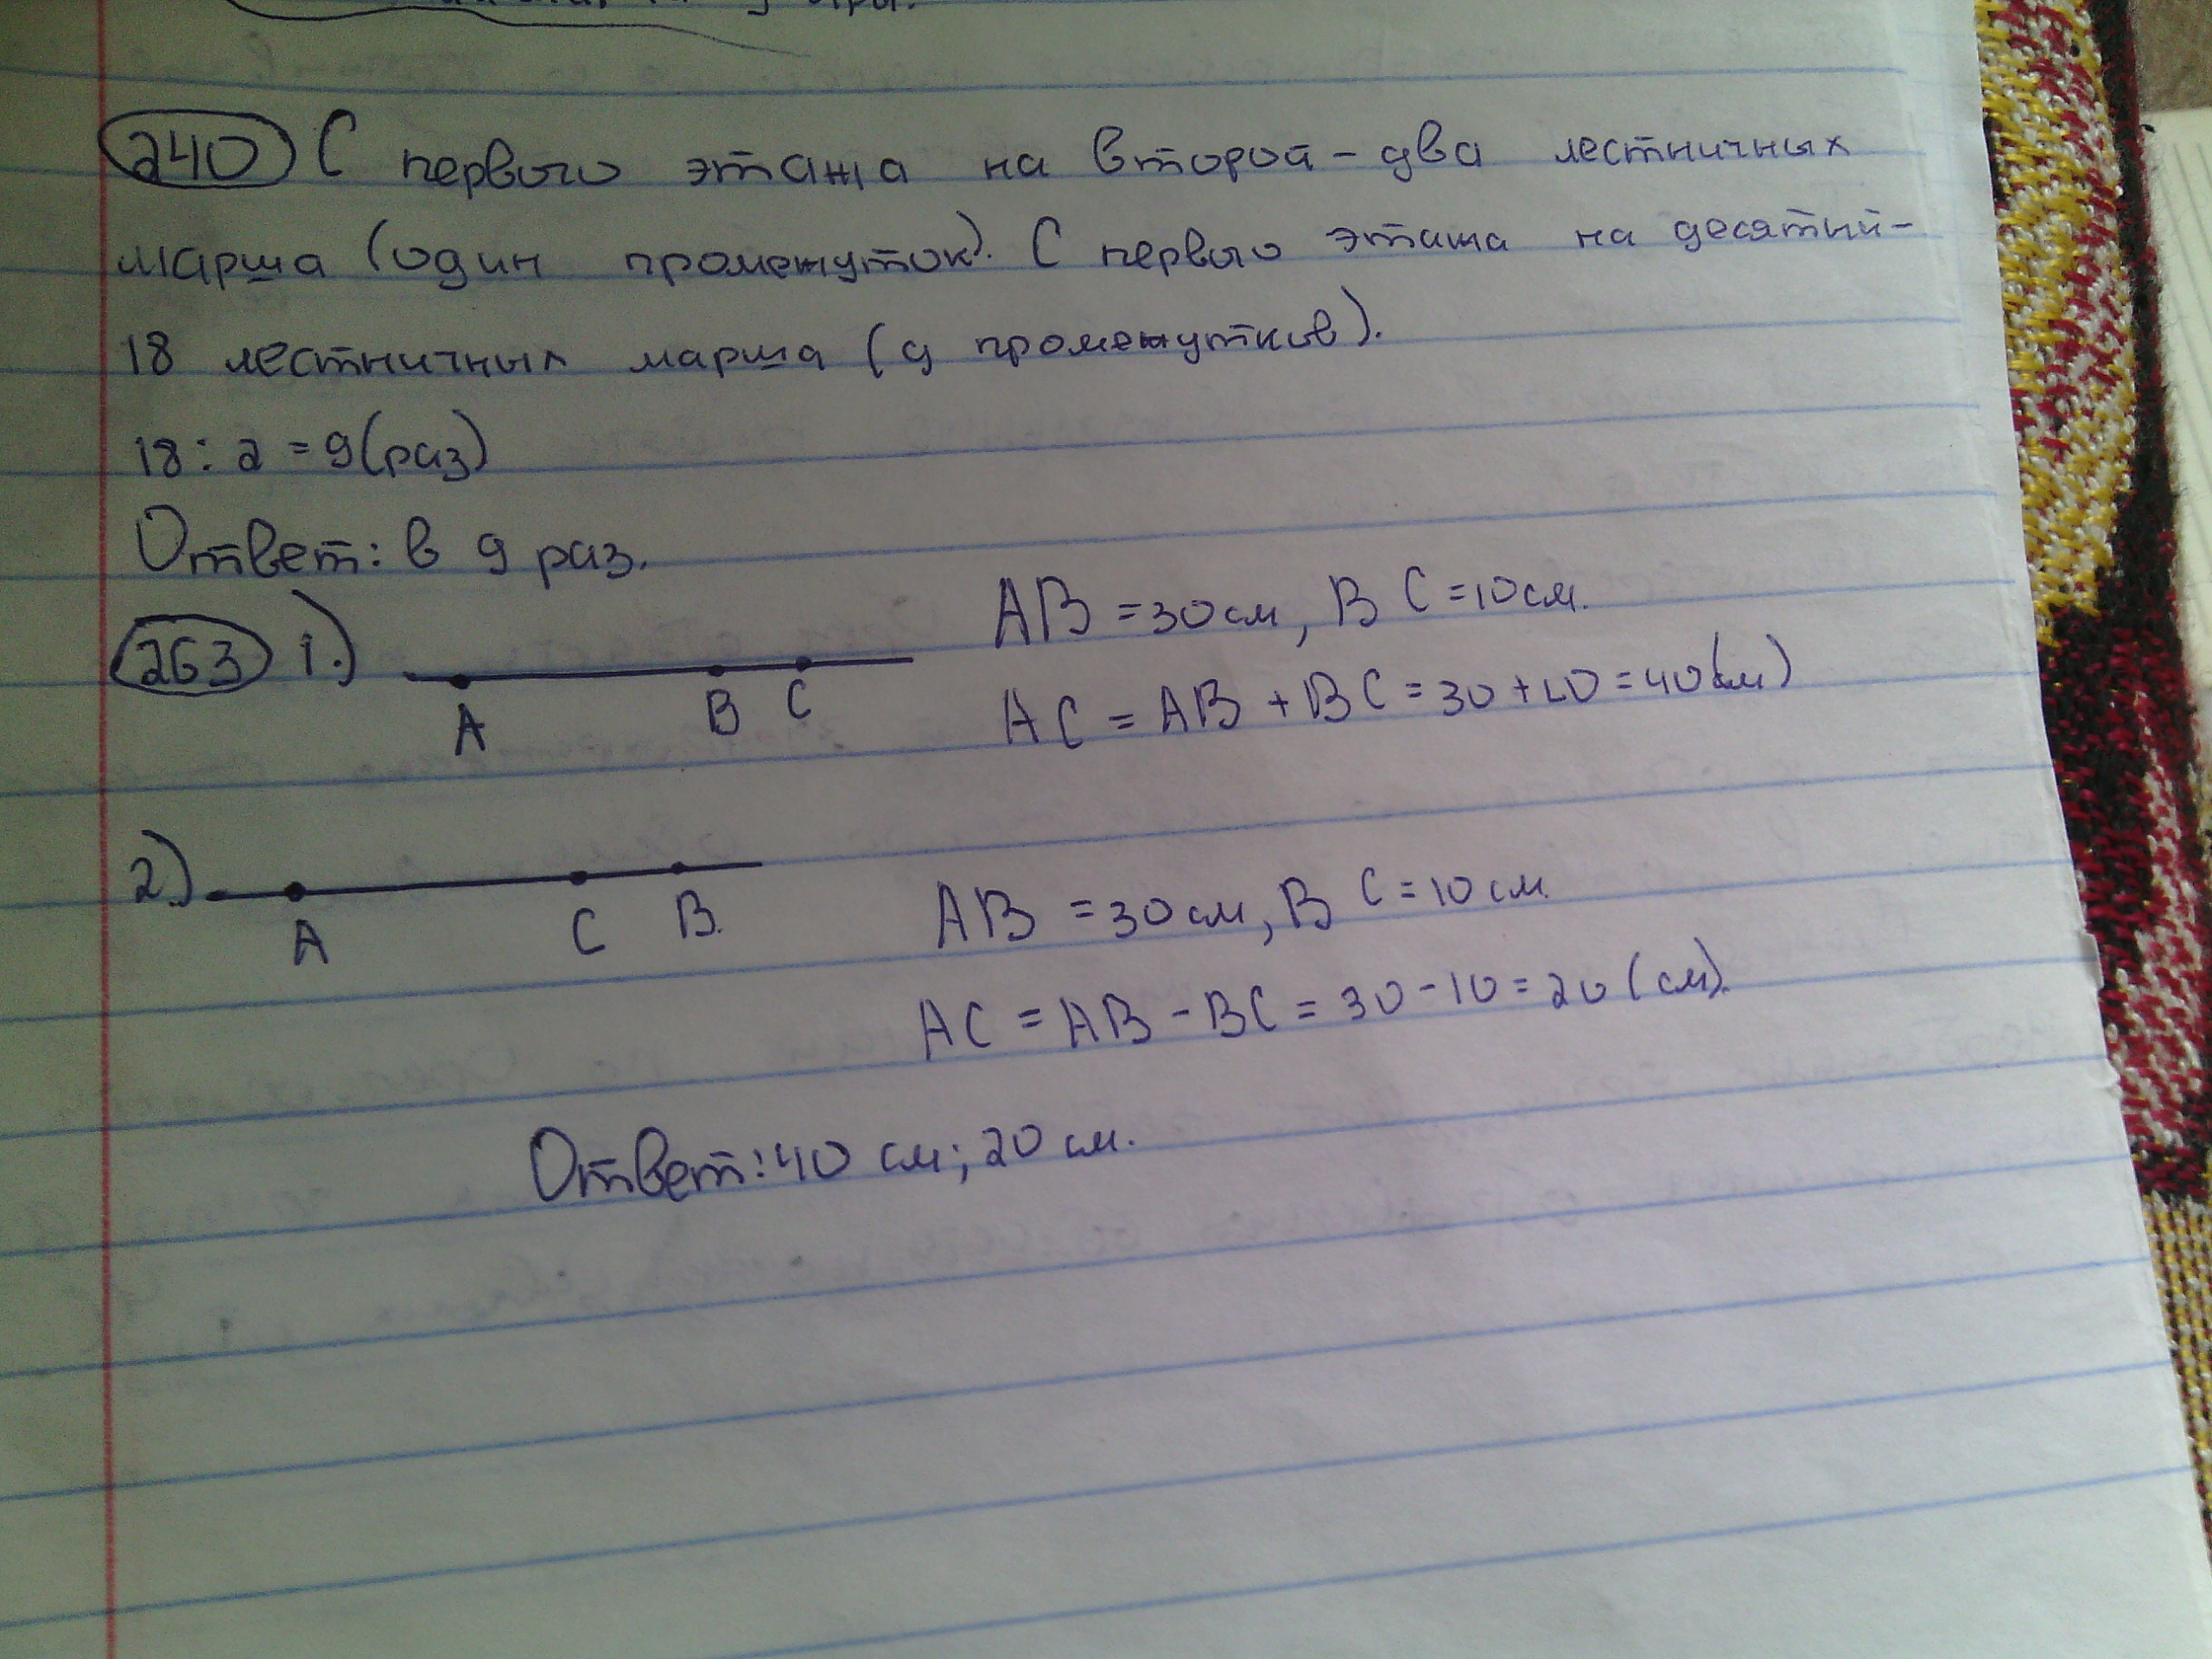 240 С первого этажа на второй - два лестничных
марша (один промежуток). С первого этажа на десятый -
18 лестничных марша (9 промежутков).
18 : 2 = 9 (раз)
Ответ: в 9 раз.
263 1.)
A B C
AB = 30 см, BC = 10 см.
AC = AB + BC = 30 + 10 = 40 (см)
2.)
A C B.
AB = 30 см, BC = 10 см.
AC = AB - BC = 30 - 10 = 20 (см).
Ответ: 40 см; 20 см.